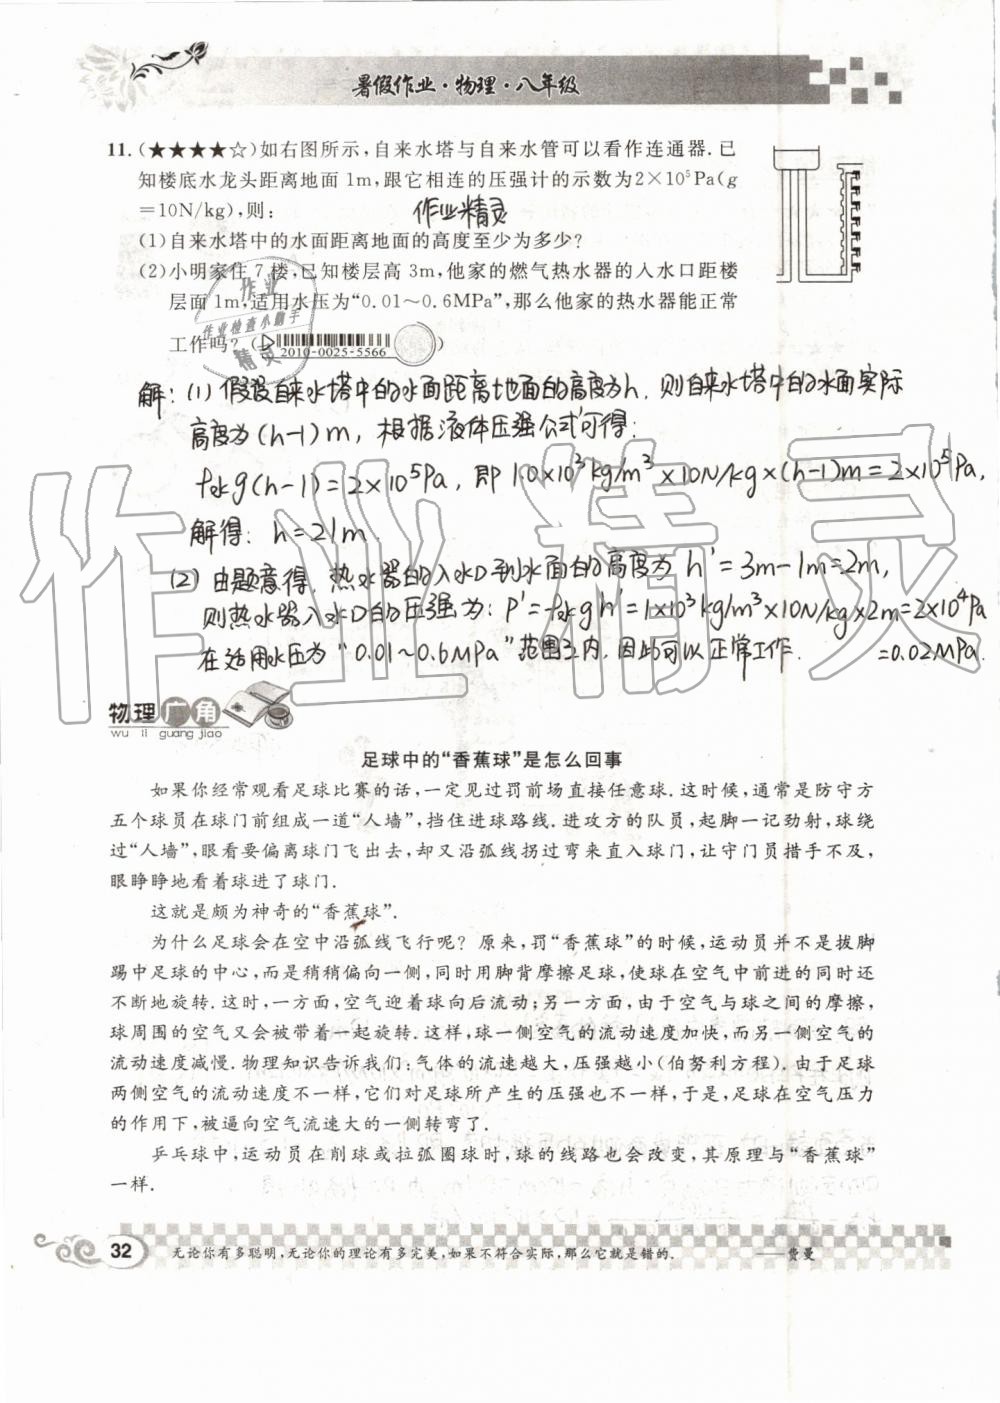 暑假作业·物理·八年级
11.(★★★★☆)如右图所示,自来水塔与自来水管可以看作连通器.已
知楼底水龙头距离地面1m,跟它相连的压强计的示数为2×10⁵Pa(g
=10N/kg),则:
作业精灵
(1)自来水塔中的水面距离地面的高度至少为多少?
(2)小明家住7楼,已知楼层高3m,他家的燃气热水器的入水口距楼
层面1m,适用水压为“0.01～0.6MPa”,那么他家的热水器能正常
工作吗?(
2010-0025-5566
)
作业
作业检查小助手
精灵
解:(1)假设自来水塔中的水面距离地面的高度为h,则自来水塔中的水面实际
高度为(h-1)m,根据液体压强公式可得:
ρ水g(h-1)=2×10⁵Pa,即1.0×10³kg/m³×10N/kg×(h-1)m=2×10⁵Pa,
解得:h=21m.
(2)由题意得,热水器的入水口到水面的高度为h'=3m-1m=2m,
则热水器入水口的压强为:P'=ρ水gh'=1×10³kg/m³×10N/kg×2m=2×10⁴Pa
=0.02MPa.
在适用水压为“0.01～0.6MPa”范围之内,因此可以正常工作.
作业精灵
物理广角
wu li guang jiao
足球中的“香蕉球”是怎么回事
如果你经常观看足球比赛的话,一定见过罚前场直接任意球.这时候,通常是防守方
五个球员在球门前组成一道“人墙”,挡住进球路线.进攻方的队员,起脚一记劲射,球绕
过“人墙”,眼看要偏离球门飞出去,却又沿弧线拐过弯来直入球门,让守门员措手不及,
眼睁睁地看着球进了球门.
这就是颇为神奇的“香蕉球”.
为什么足球会在空中沿弧线飞行呢?原来,罚“香蕉球”的时候,运动员并不是拔脚
踢中足球的中心,而是稍稍偏向一侧,同时用脚背摩擦足球,使球在空气中前进的同时还
不断地旋转.这时,一方面,空气迎着球向后流动;另一方面,由于空气与球之间的摩擦,
球周围的空气又会被带着一起旋转.这样,球一侧空气的流动速度加快,而另一侧空气的
流动速度减慢.物理知识告诉我们:气体的流速越大,压强越小(伯努利方程).由于足球
两侧空气的流动速度不一样,它们对足球所产生的压强也不一样,于是,足球在空气压力
的作用下,被逼向空气流速大的一侧转弯了.
乒乓球中,运动员在削球或拉弧圈球时,球的线路也会改变,其原理与“香蕉球”
一样.
32
无论你有多聪明,无论你的理论有多完美,如果不符合实际,那么它就是错的.
——费曼